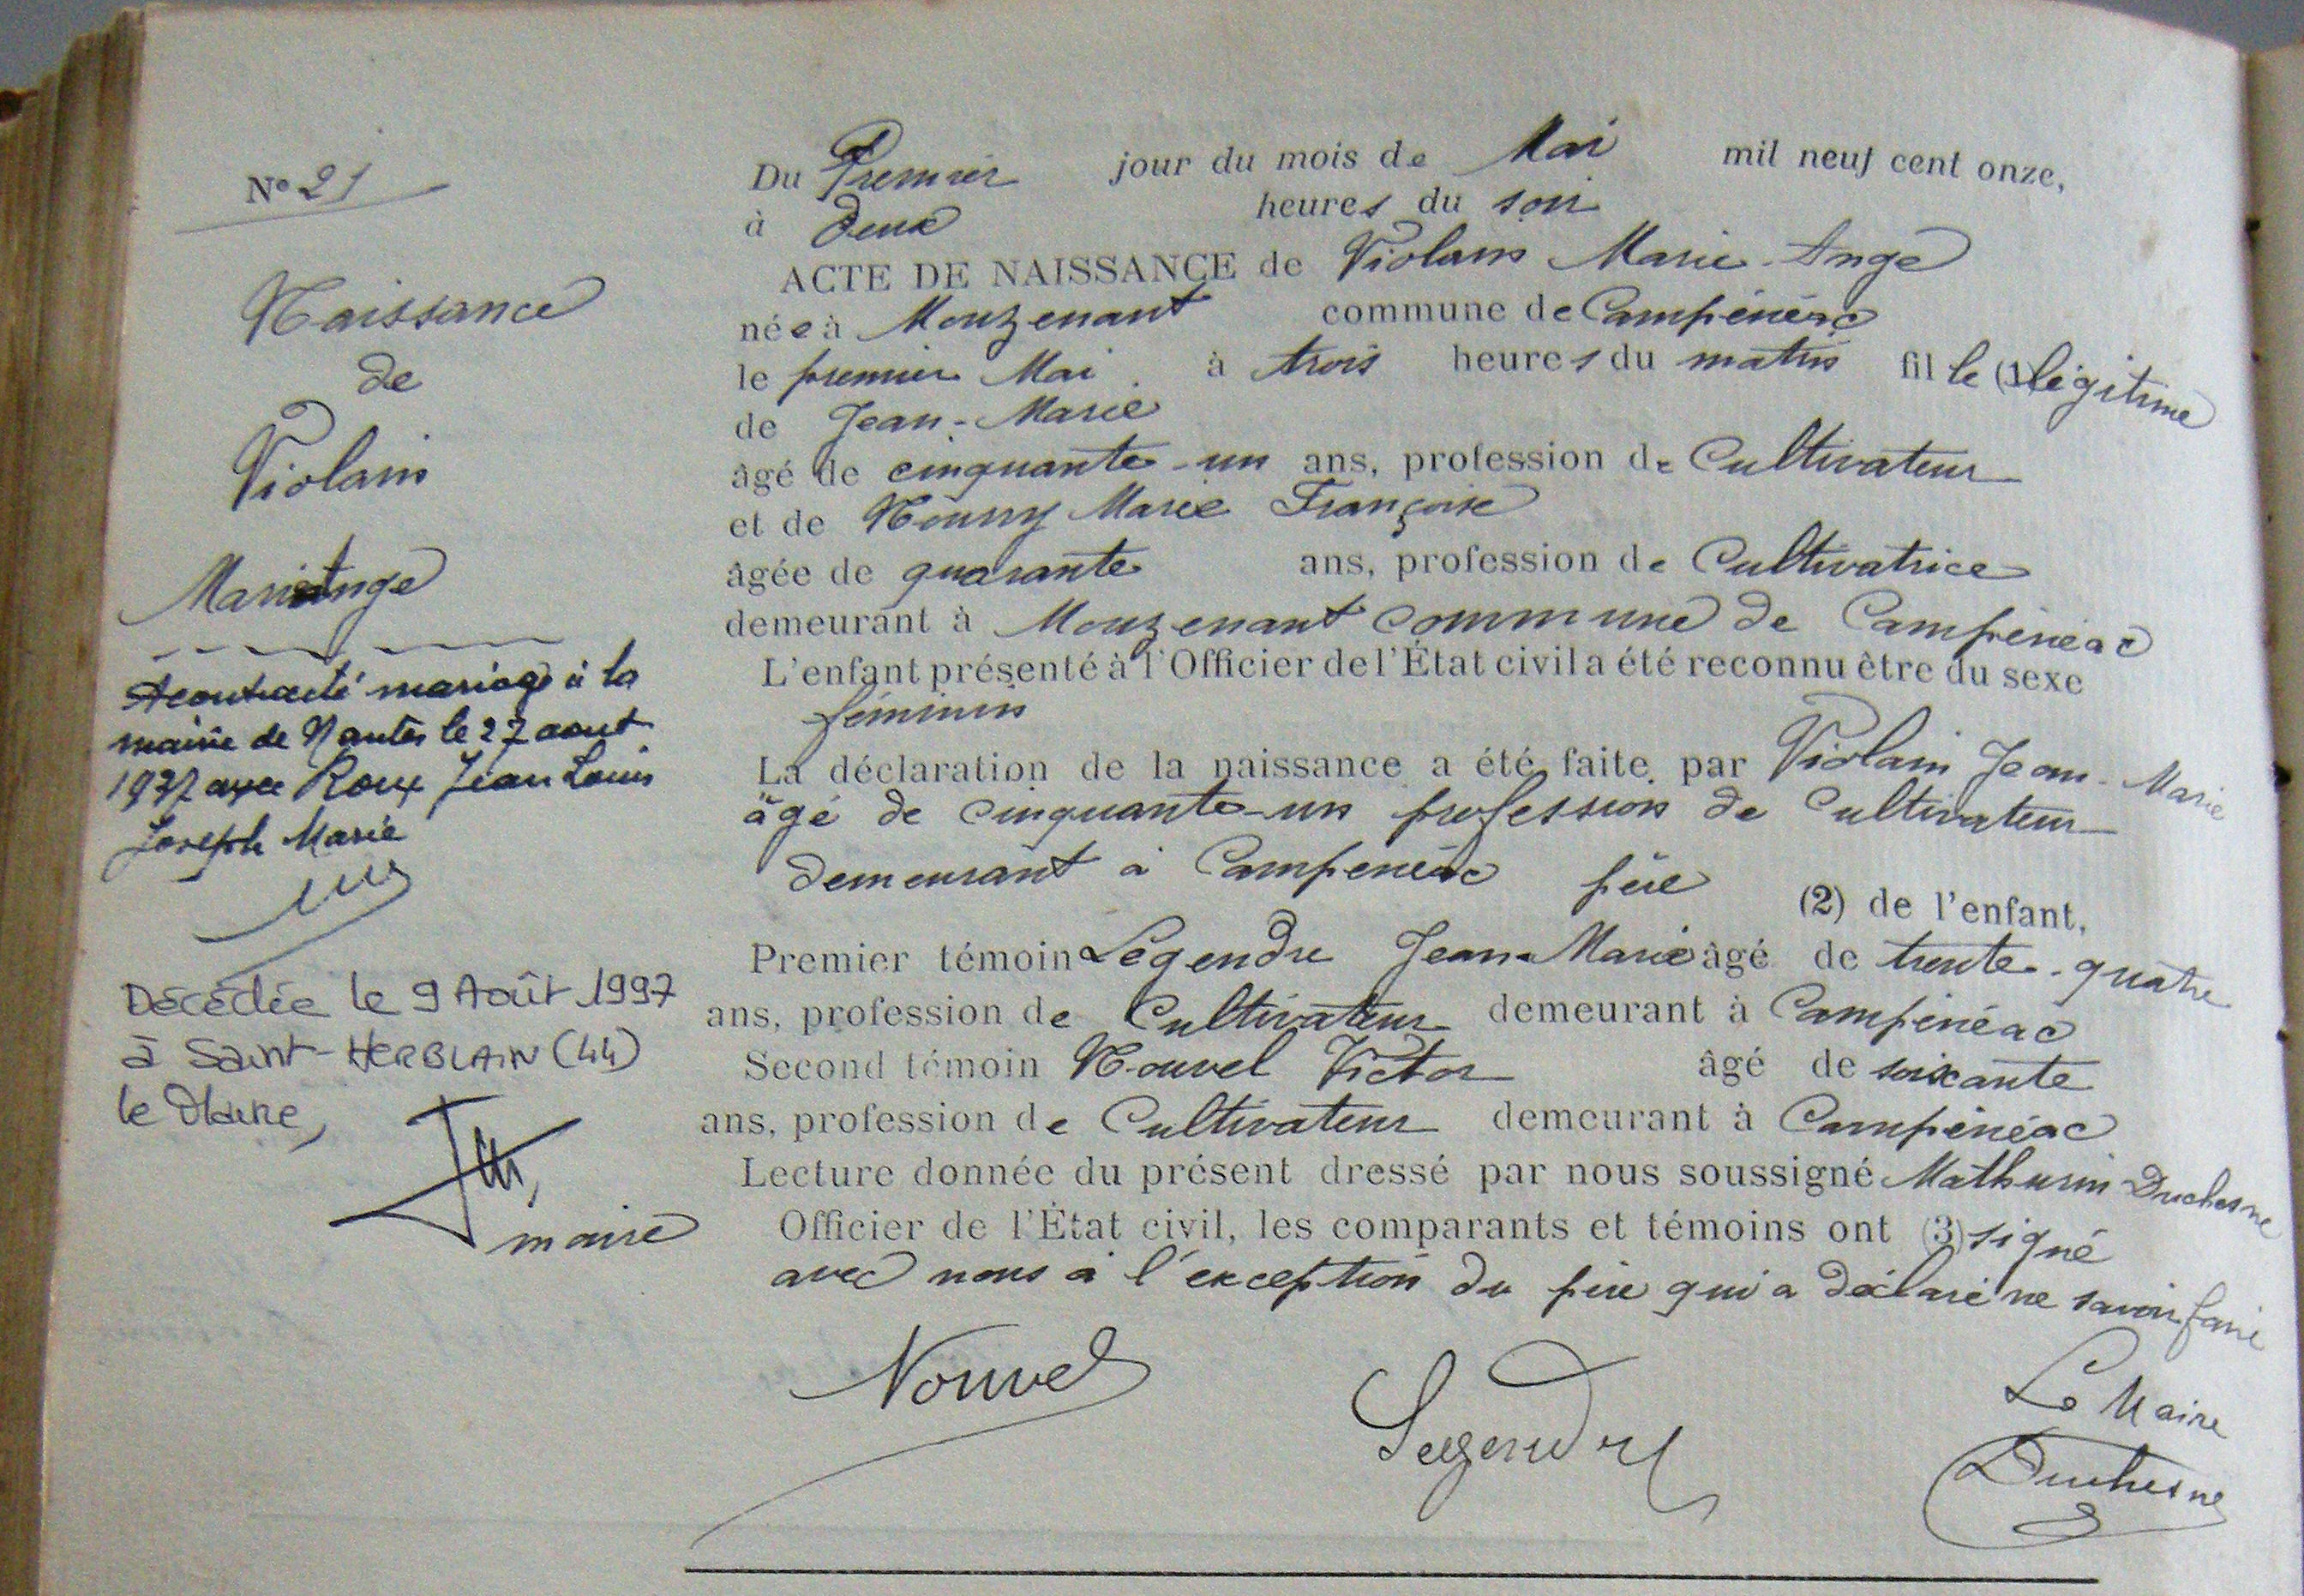 N° 21
Naissance
de
Violain
Marie Ange
A contracté mariage à la
mairie de Nantes le 27 aout
1937 avec Roux Jean Louis
Joseph Marie
Décédée le 9 Août 1997
à Saint-HERBLAIN (44)
le Maire,
maire
Du Premier jour du mois de Mai mil neuf cent onze,
à deux heures du soir
ACTE DE NAISSANCE de Violain Marie-Ange
née à Mouzenant commune de Campénéac
le premier Mai à trois heures du matin fille (1) légitime
de Jean-Marie
âgé de cinquante-un ans, profession de Cultivateur
et de Noury Marie Françoise
âgée de quarante ans, profession de Cultivatrice
demeurant à Mouzenant commune de Campénéac
L'enfant présenté à l'Officier de l'État civil a été reconnu être du sexe
féminin
La déclaration de la naissance a été faite par Violain Jean-Marie
âgé de cinquante-un profession de Cultivateur
demeurant à Campénéac père (2) de l'enfant,
Premier témoin Légendre Jean-Marie âgé de trente-quatre
ans, profession de Cultivateur demeurant à Campénéac
Second témoin Nouvel Victor âgé de soixante
ans, profession de Cultivateur demeurant à Campénéac
Lecture donnée du présent dressé par nous soussigné Mathurin Duchesne
Officier de l'État civil, les comparants et témoins ont (3) signé
avec nous à l'exception du père qui a déclaré ne savoir faire
Nouvel
Legendre
Le Maire
Duchesne